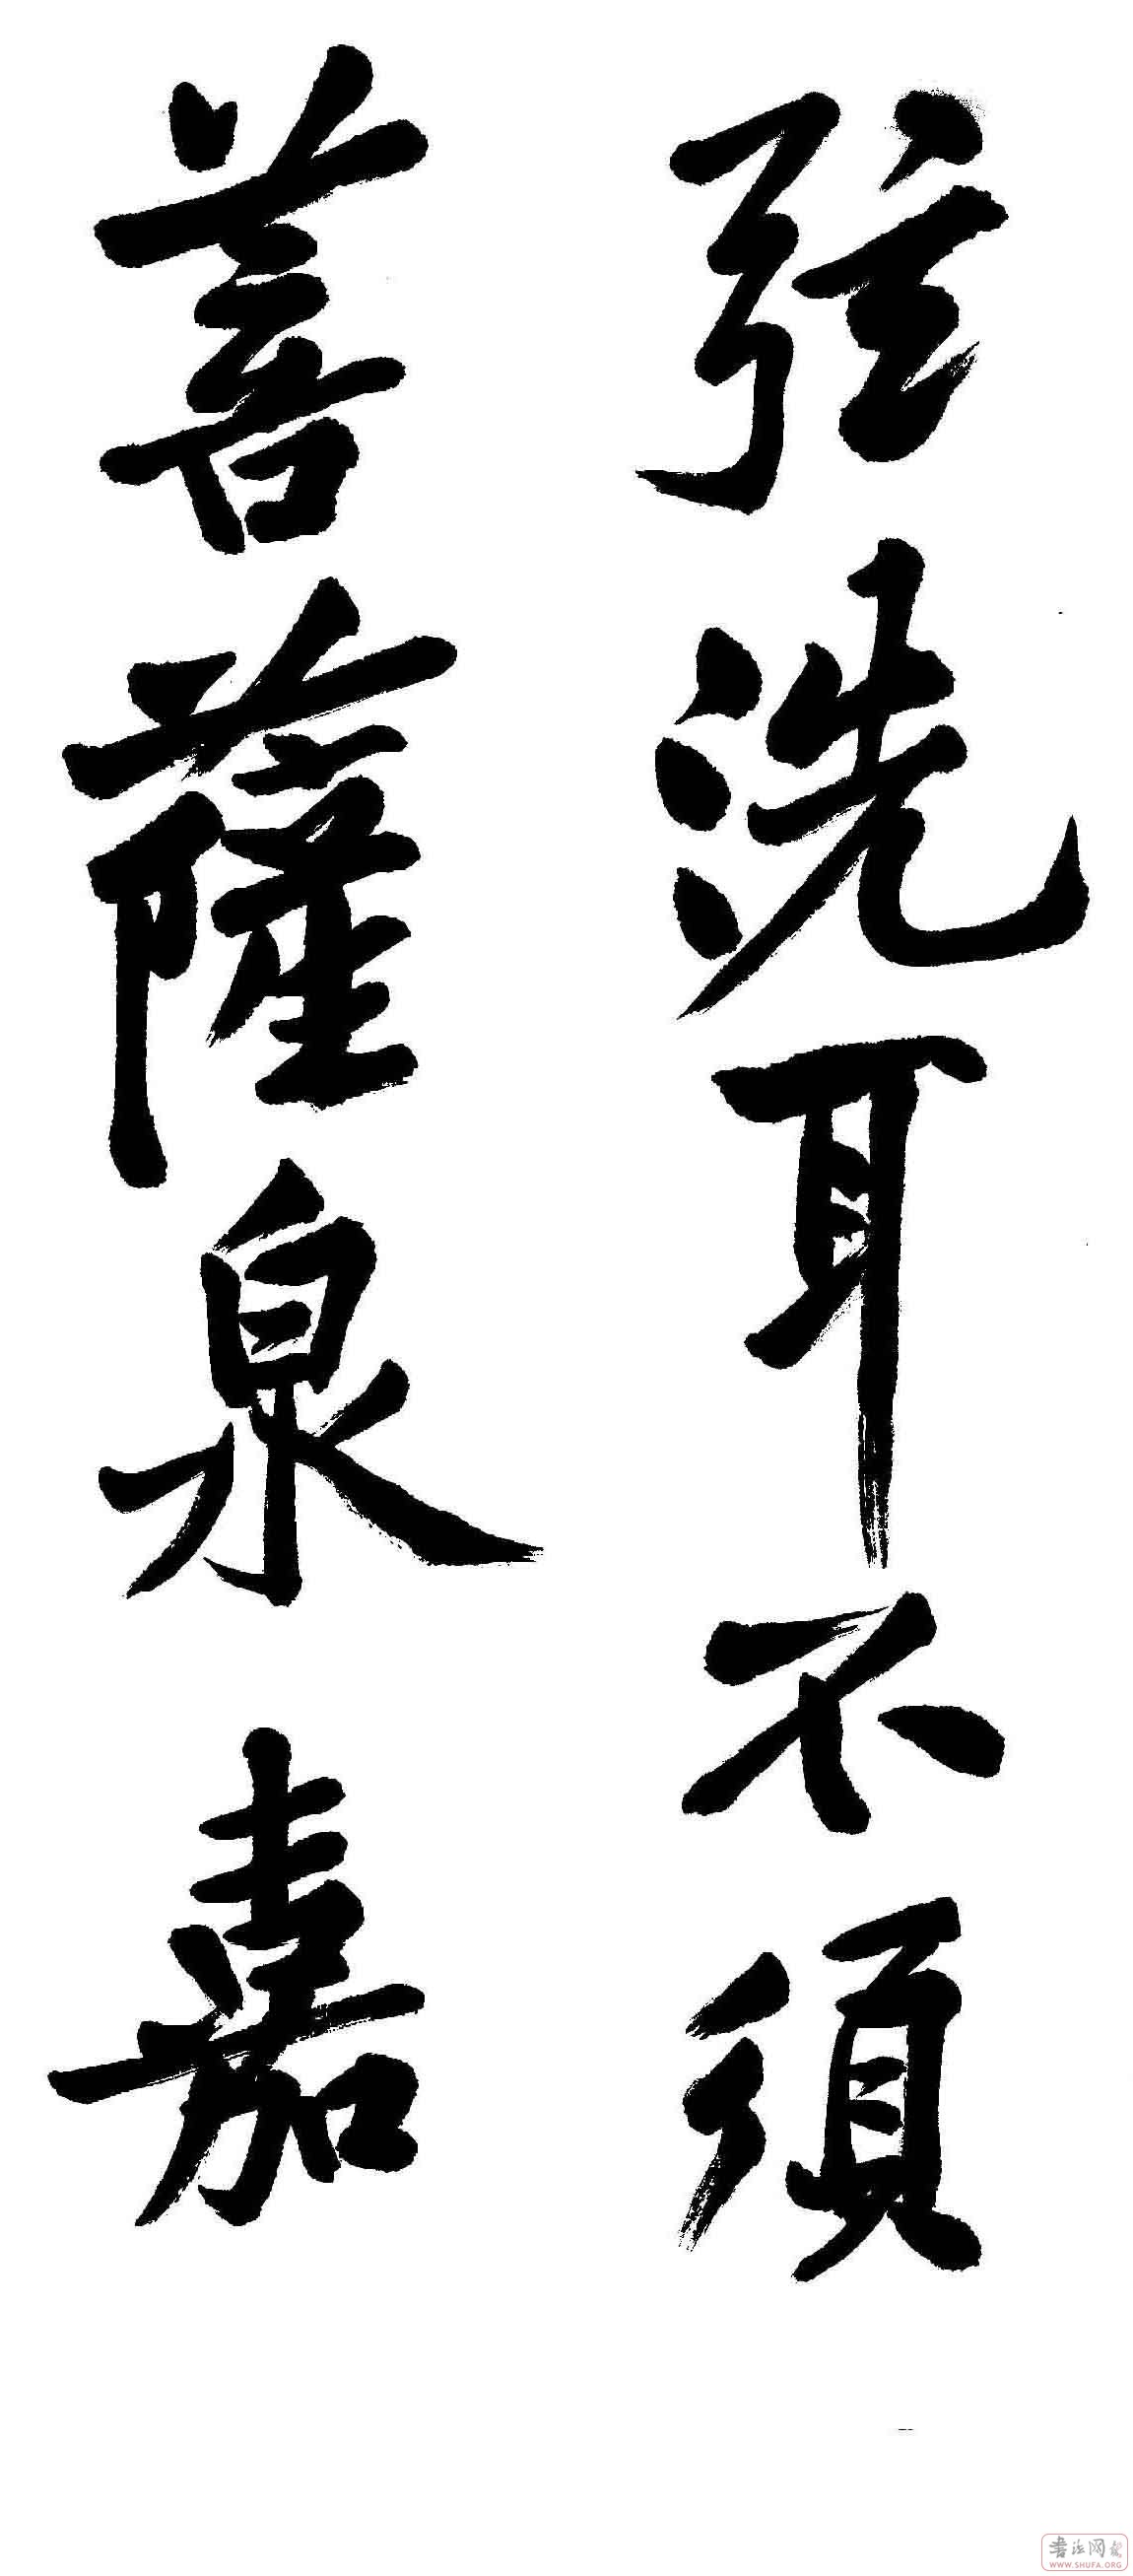 弦洗耳不須
菩薩泉嘉
書法网
WWW.SHUFA.ORG